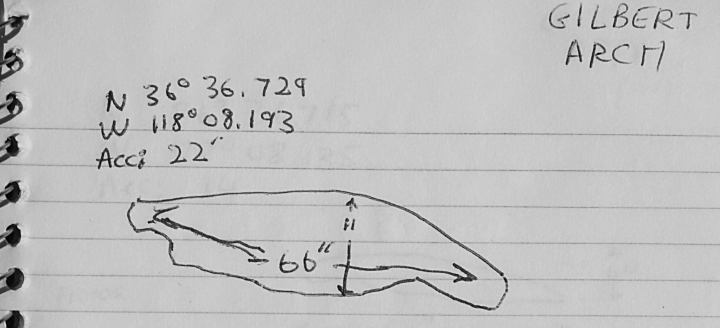 GILBERT
ARCH
N 36° 36.729
W 118° 08.193
Acc: 22"
66"